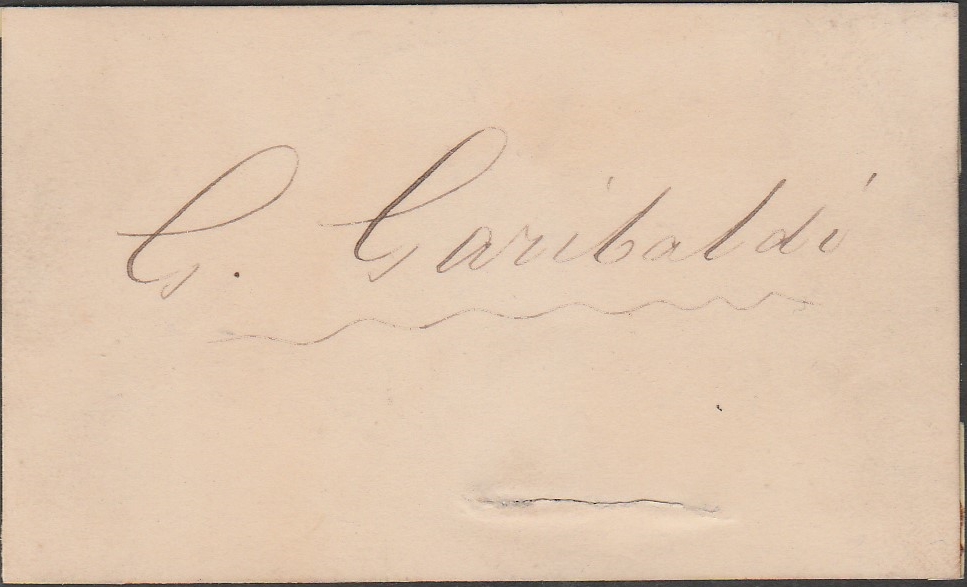 G. Garibaldi